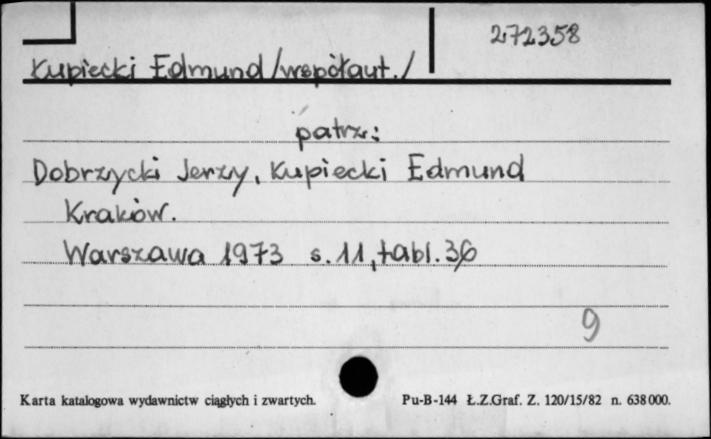 272358
Kupiecki Edmund /współaut./
patrz:
Dobrzycki Jerzy, Kupiecki Edmund
Kraków.
Warszawa 1973 s. 11, tabl. 36
9
Karta katalogowa wydawnictw ciągłych i zwartych. Pu-B-144 Ł.Z.Graf. Z. 120/15/82 n. 638000.